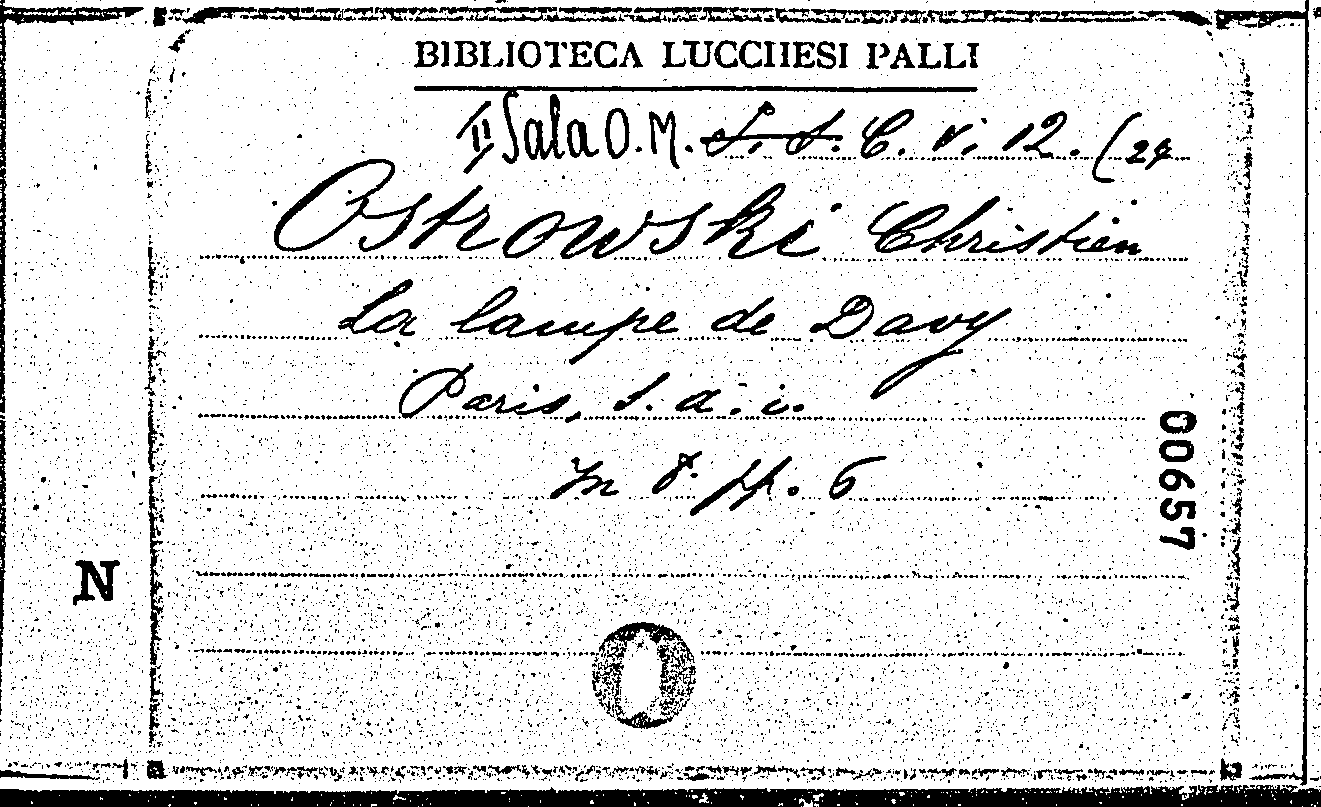 BIBLIOTECA LUCCHESI PALLI
II Sala O.M. S. S. C. VI. 12. (24
Ostrowski Christien
La lampe de Davy
Paris, s. a. i.
in 8. pp. 6
00657
N